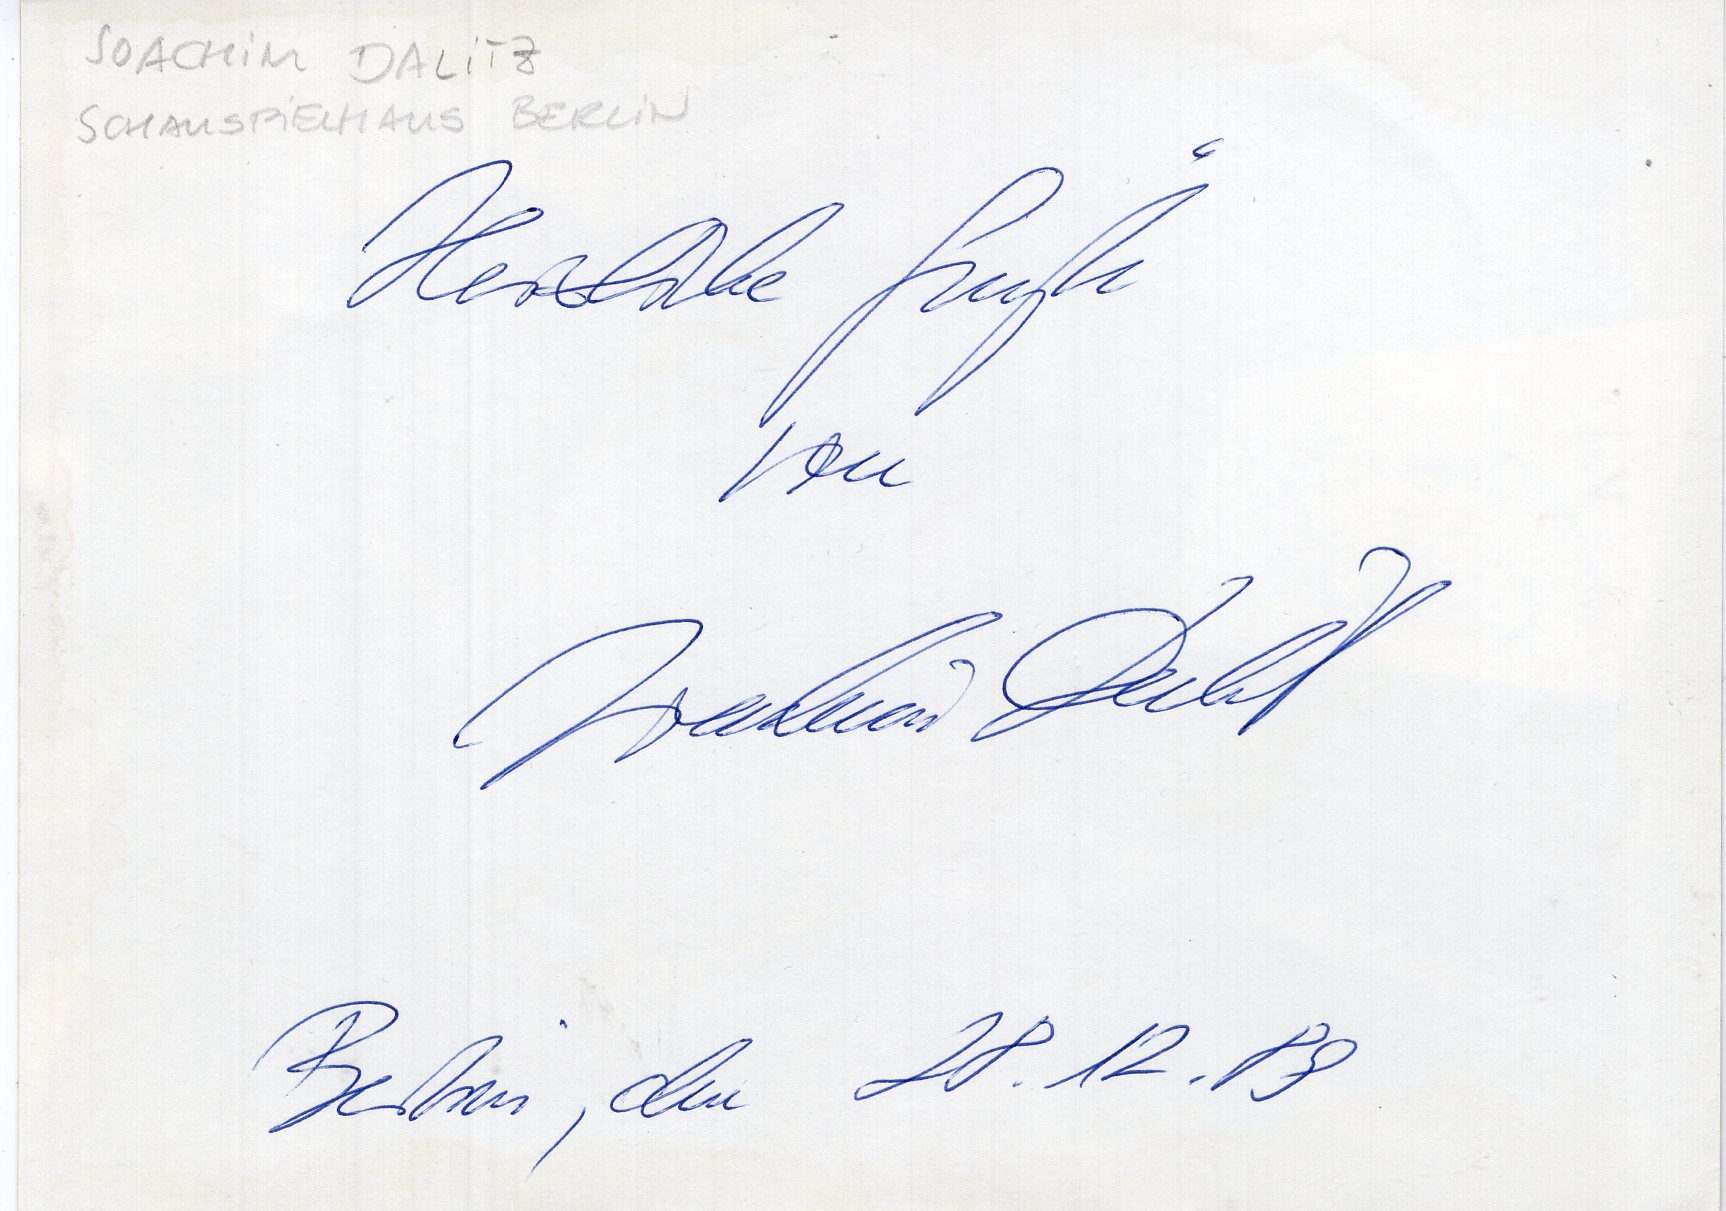 JOACHIM DALITZ
SCHAUSPIELHAUS BERLIN
Herzliche Grüße
von
Joachim Dalitz
Berlin, den 28.12.89